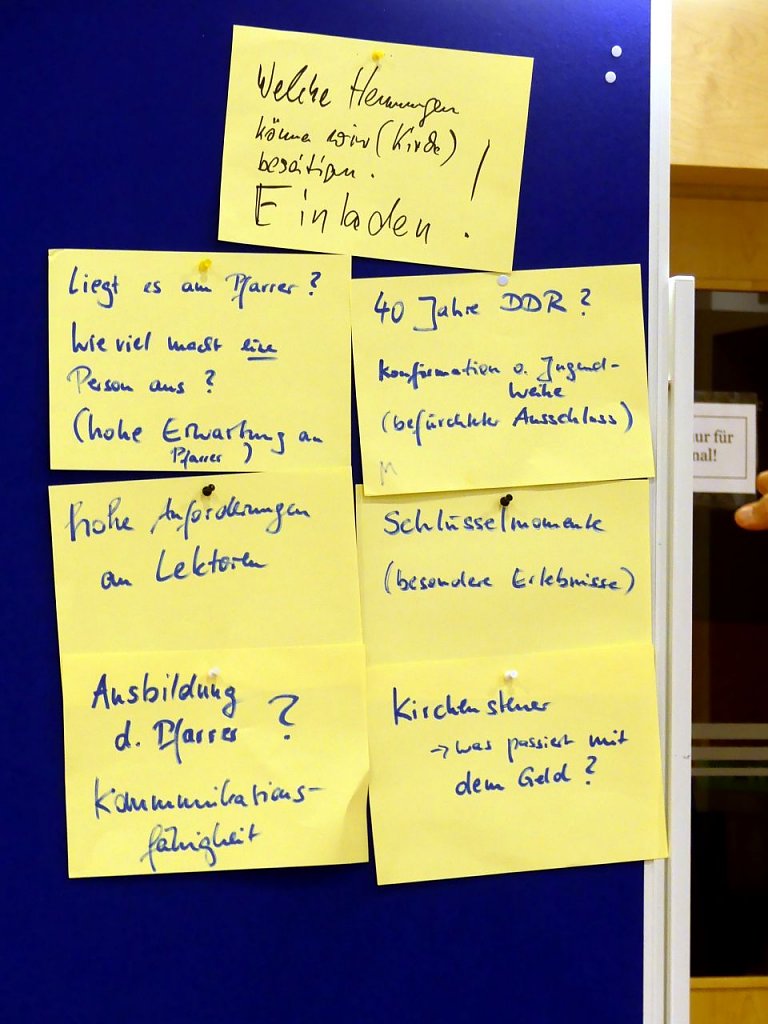 Welche Hemmungen
können wir (Kirche)
beseitigen.
Einladen!
Liegt es am Pfarrer?
Wie viel macht eine
Person aus?
(hohe Erwartung an
Pfarrer)
40 Jahre DDR?
Konfirmation o. Jugend-
weihe
(befürchteter Ausschluss)
M
hohe Anforderungen
an Lektoren
Schlüsselmomente
(besondere Erlebnisse)
Ausbildung
d. Pfarrer ?
Kommunikations-
fähigkeit
Kirchensteuer
→ was passiert mit
dem Geld?
ur für
nal!